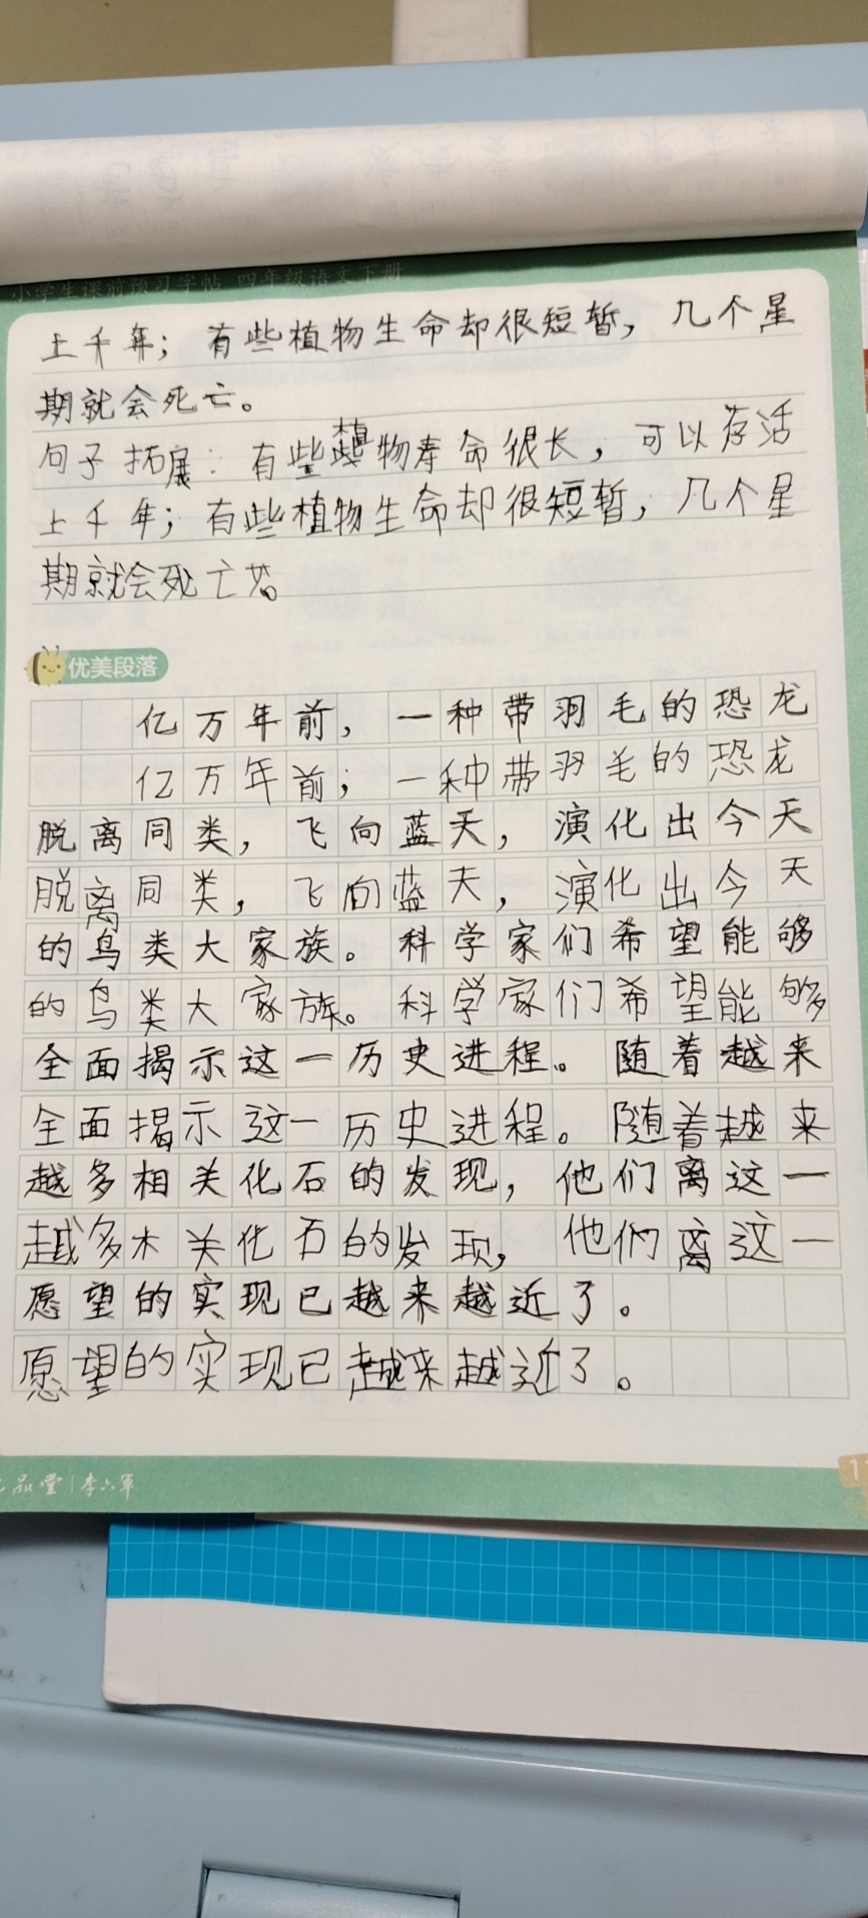 小学生课前预习字帖 四年级语文下册
上千年；有些植物生命却很短暂，几个星
期就会死亡。
句子拓展：有些植物寿命很长，可以存活
上千年；有些植物生命却很短暂，几个星
期就会死亡。
优美段落
亿万年前，一种带羽毛的恐龙
亿万年前；一种带羽毛的恐龙
脱离同类，飞向蓝天，演化出今天
脱离同类，飞向蓝天，演化出今天
的鸟类大家族。科学家们希望能够
的鸟类大家族。科学家们希望能够
全面揭示这一历史进程。随着越来
全面揭示这一历史进程。随着越来
越多相关化石的发现，他们离这一
越多木关化石的发现，他们离这一
愿望的实现已越来越近了。
愿望的实现已越来越近了。
品堂|李六军